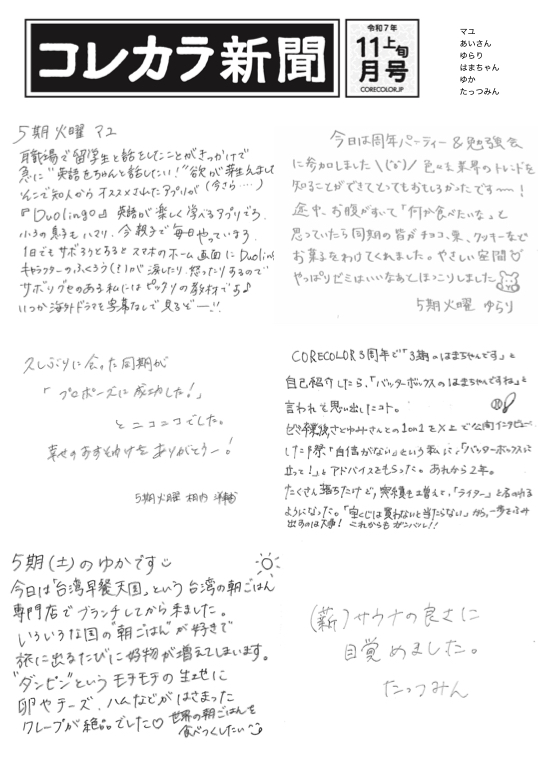 コレカラ新聞
令和7年
11上旬
月号
CORECOLOR.JP
マユ
あいさん
ゆらり
はまちゃん
ゆか
たっつみん
5期火曜 マユ
職場で留学生と話をしたことがきっかけで
急に"英語をちゃんと話したい!"欲が芽生えまして
(今さら….)
そこで知人からオススメされたアプリが
『Duolingo』英語が楽しく学べるアプリでろ.
小3の息子もハマり、今親子で毎日やっています.
1日でもサボろうとするとスマホのホーム画面にDuolino
キャラクターのふくろう(?)が涙したり.怒ったりするので
サボりグセのある私にはピッタリの教材です♪
いつか海外ドラマを字幕なしで見るぞー!!
今日は周年パーティー&勉強会
に参加しました\(^o^)/ 色々な業界のトレンドを
知ることができてとてもおもしろかったです〜!
途中、お腹がすいて「何か食べたいな」と
思っていたら同期の皆がチョコ、栗、クッキーなど
お菓子をわけてくれました。やさしい空間♡
やっぱりゼミはいいなぁとほっこりしました
5期火曜 ゆらり
久しぶりに会った同期が
「プロポーズに成功した!」
とニコニコでした。
幸せのおすそわけをありがとうー!
5期火曜 相内 洋輔
CORECOLOR3周年で「3期のはまちゃんです」と
自己紹介したら、「バッターボックスのはまちゃんですね」と
言われて思い出したコト。
ゼミ卒業後さとゆみさんとの1on1をX上で公開インタビュー
した時、「自信がない」という私に、「バッターボックスに
立って!」とアドバイスをもらった。あれから2年。
たくさん落ちたけど、実績も増えて、「ライター」と名のれる
ようになった。「宝くじは買わないと当たらない」から、一歩をふみ
出すのは大事! これからもガンバル!!
5期(土)のゆかです
今日は「台湾早餐天国」という台湾の朝ごはん
専門店でブランチしてから来ました。
いろいろな国の"朝ごはん"が好きで
旅に出るたびに好物が増えてしまいます。
"ダンピン"というモチモチの生地に
卵やチーズ、ハムなどがはさまった
クレープが絶品でした♡ 世界の朝ごはんを
食べつくしたい
(薪)サウナの良さに
目覚めました。
たっつみん